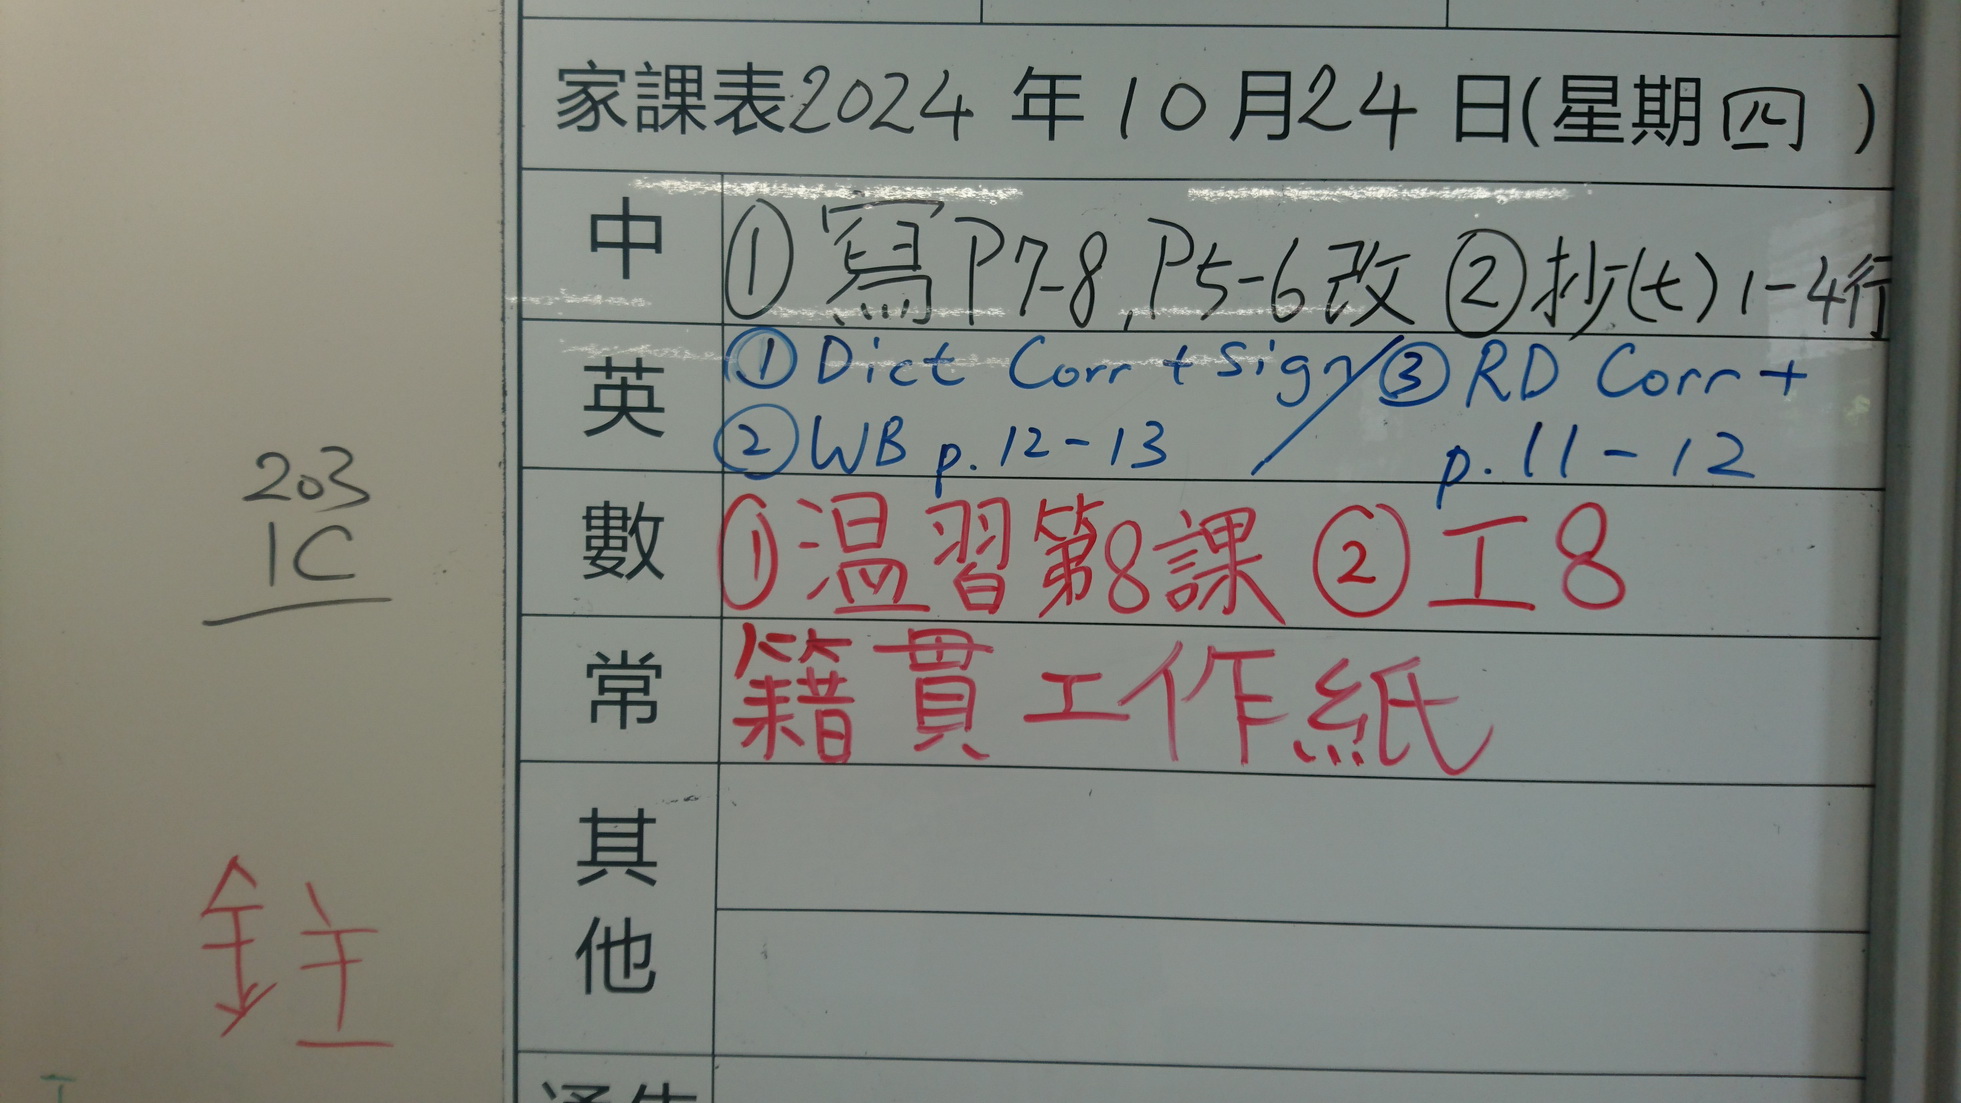 家課表2024年10月24日(星期四)
中 ①寫P7-8,P5-6改 ②抄(七)1-4行
英 ①Dict Corr + Sign/③RD Corr +
②WB p.12-13 / p.11-12
數 ①温習第8課 ②工8
常 籍貫工作紙
其他
通告
203
1C
鉒